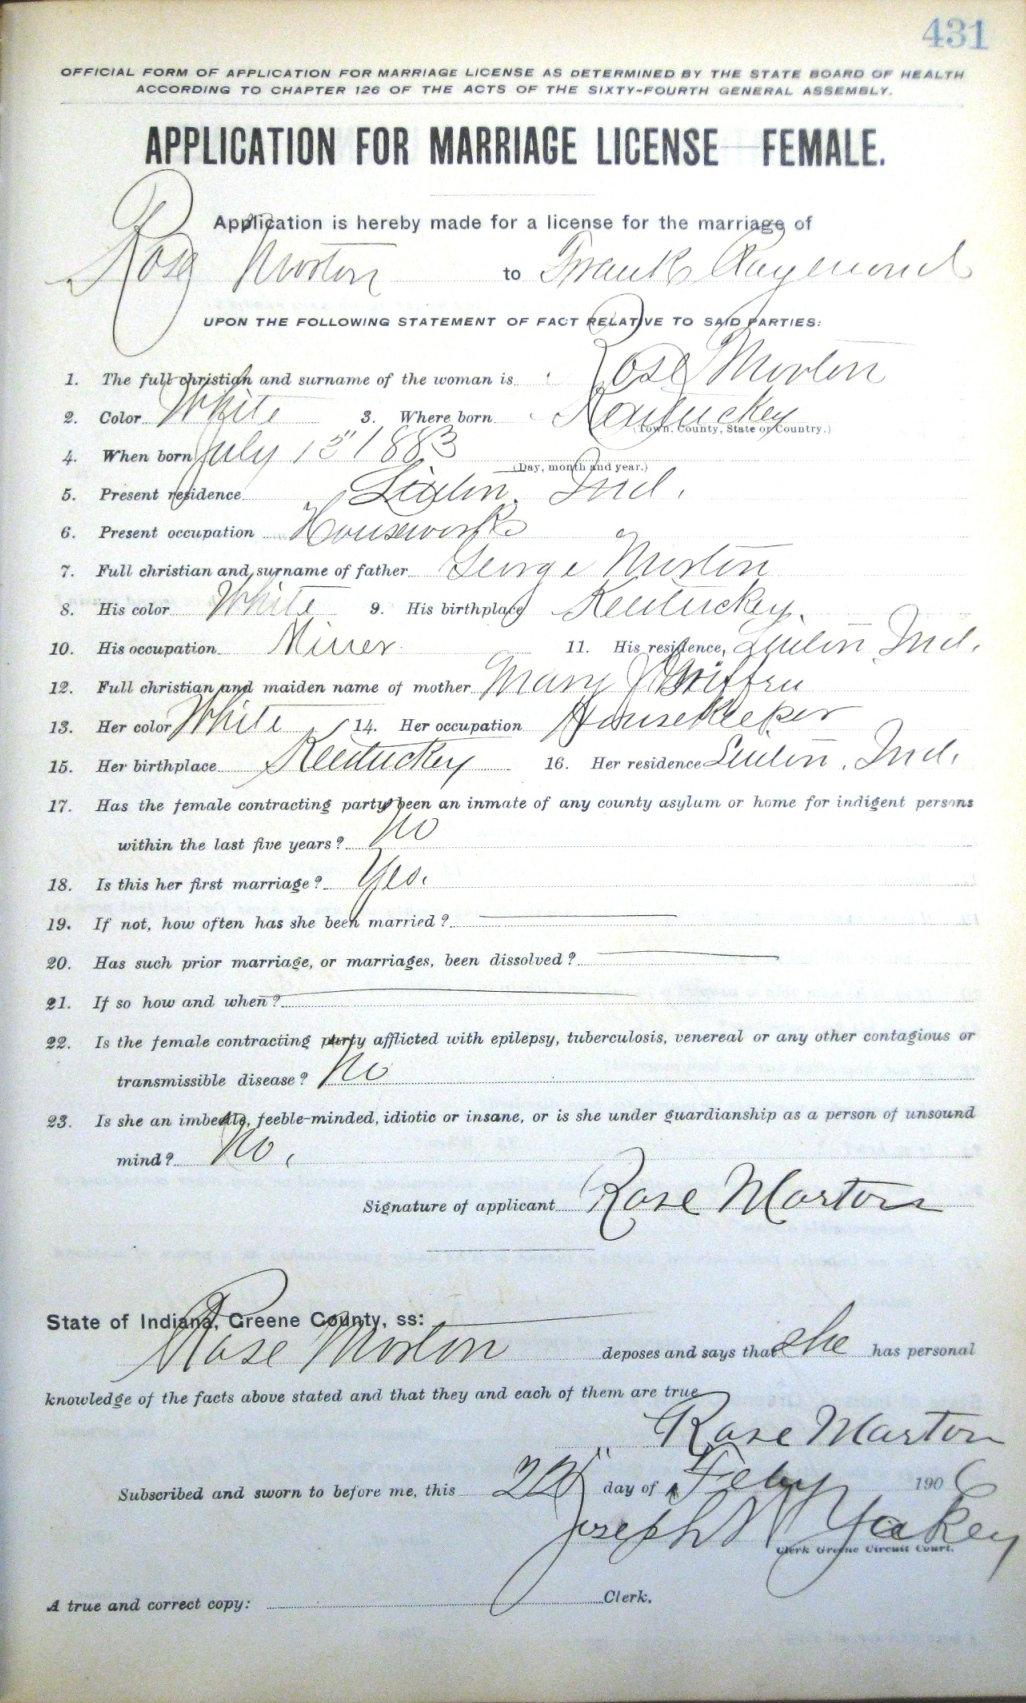 431
OFFICIAL FORM OF APPLICATION FOR MARRIAGE LICENSE AS DETERMINED BY THE STATE BOARD OF HEALTH
ACCORDING TO CHAPTER 126 OF THE ACTS OF THE SIXTY-FOURTH GENERAL ASSEMBLY.
APPLICATION FOR MARRIAGE LICENSE FEMALE.
Application is hereby made for a license for the marriage of
Rose Morton to Frank Raymond
UPON THE FOLLOWING STATEMENT OF FACT RELATIVE TO SAID PARTIES:
1. The full christian and surname of the woman is Rose Morton
2. Color White 3. Where born Kentucky
(Town, County, State or Country.)
4. When born July 15" 1883
(Day, month and year.)
5. Present residence Linton, Ind.
6. Present occupation Housework
7. Full christian and surname of father George Morton
8. His color White 9. His birthplace Kentucky.
10. His occupation Miner. 11. His residence, Linton, Ind.
12. Full christian and maiden name of mother Mary J
13. Her color White 14. Her occupation HouseKeeper
15. Her birthplace Kentucky 16. Her residence Linton, Ind.
17. Has the female contracting party been an inmate of any county asylum or home for indigent persons
within the last five years? No
18. Is this her first marriage? Yes.
19. If not, how often has she been married?
20. Has such prior marriage, or marriages, been dissolved?
21. If so how and when?
22. Is the female contracting party afflicted with epilepsy, tuberculosis, venereal or any other contagious or
transmissible disease? No
23. Is she an imbecile, feeble-minded, idiotic or insane, or is she under guardianship as a person of unsound
mind? No.
Signature of applicant Rose Morton
State of Indiana, Greene County, ss:
Rose Morton deposes and says that she has personal
knowledge of the facts above stated and that they and each of them are true
Rose Morton
Subscribed and sworn to before me, this day of Feby 1906
Joseph W Yakey
Clerk Greene Circuit Court.
A true and correct copy: Clerk.